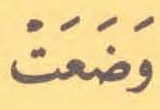 وَضَعَتْ